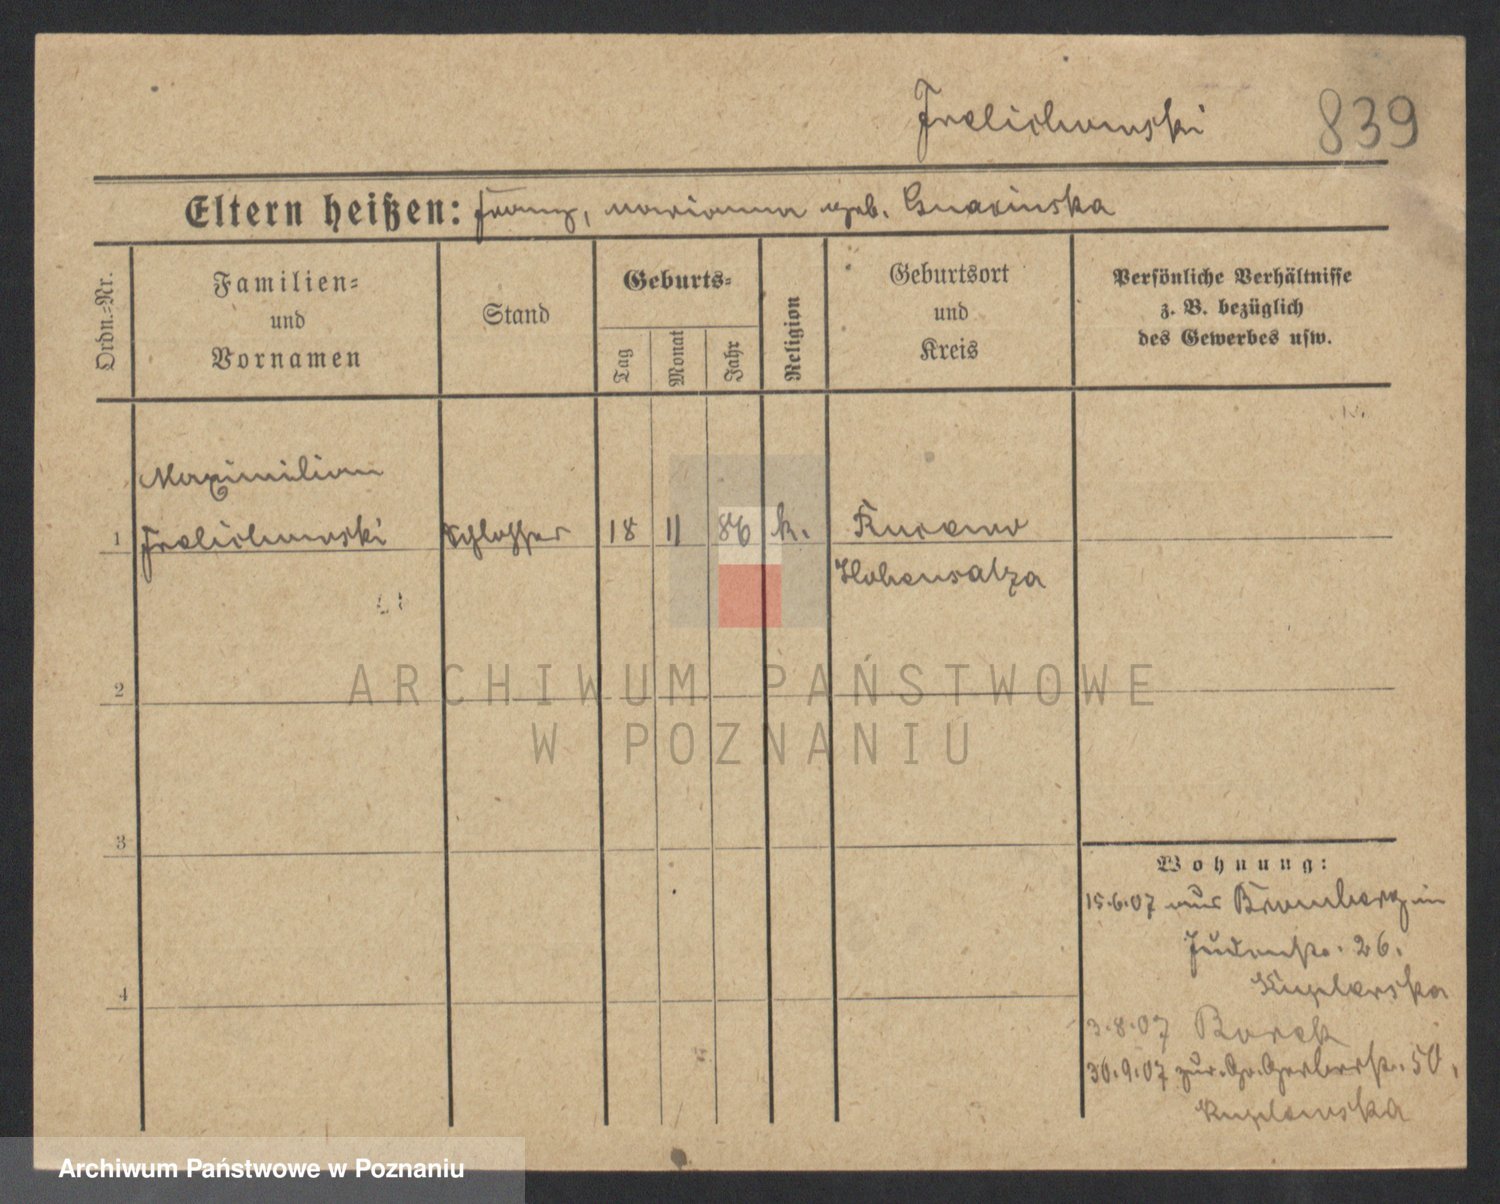 Frelichowski 839
Eltern heißen: Franz, Marianna geb.
Ordn.=Nr.
Familien=
und
Vornamen
Stand
Geburts=
Tag
Monat
Jahr
Religion
Geburtsort
und
Kreis
Persönliche Verhältnisse
z. B. bezüglich
des Gewerbes usw.
Maximilian
1 Frelichowski Schlosser 18 11 86 k.
Hohensalza
2
3
4
Wohnung:
15.6.07 aus Bromberg in
Judenstr. 26.
3.8.07 Borek
30.9.07 zur. Gr. Gerberstr. 50,
ARCHIWUM PAŃSTWOWE
W POZNANIU
Archiwum Państwowe w Poznaniu